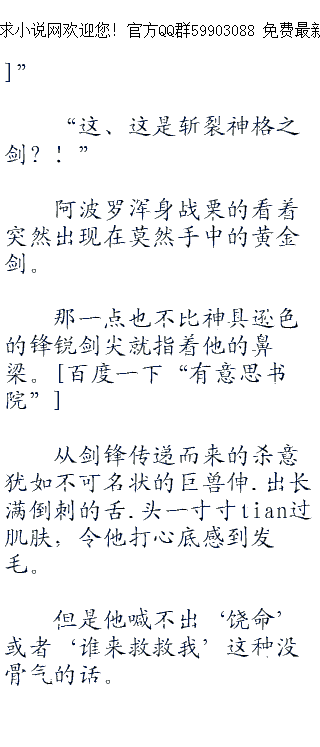 求小说网欢迎您! 官方QQ群59903088 免费最新
]”
“这、这是斩裂神格之
剑？！”
阿波罗浑身战栗的看着
突然出现在莫然手中的黄金
剑。
那一点也不比神具逊色
的锋锐剑尖就指着他的鼻
梁。[百度一下“有意思书
院”]
从剑锋传递而来的杀意
犹如不可名状的巨兽伸.出长
满倒刺的舌.头一寸寸tian过
肌肤，令他打心底感到发
毛。
但是他喊不出‘饶命’
或者‘谁来救救我’这种没
骨气的话。